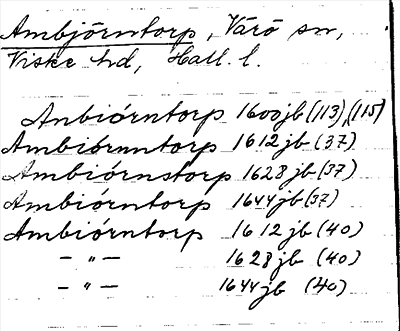 Ambjörntorp, Värö sn,
Viske hd, Hall. l.
Anbiórntorp 1600 jb (113), (115)
Ambiórnntorp 1612 jb (37)
Ambiórnstorp 1628 jb (37)
Ambiórntorp 1644 jb (37)
Ambiórntorp 1612 jb (40)
— " — 1628 jb (40)
— " — 1644 jb (40)